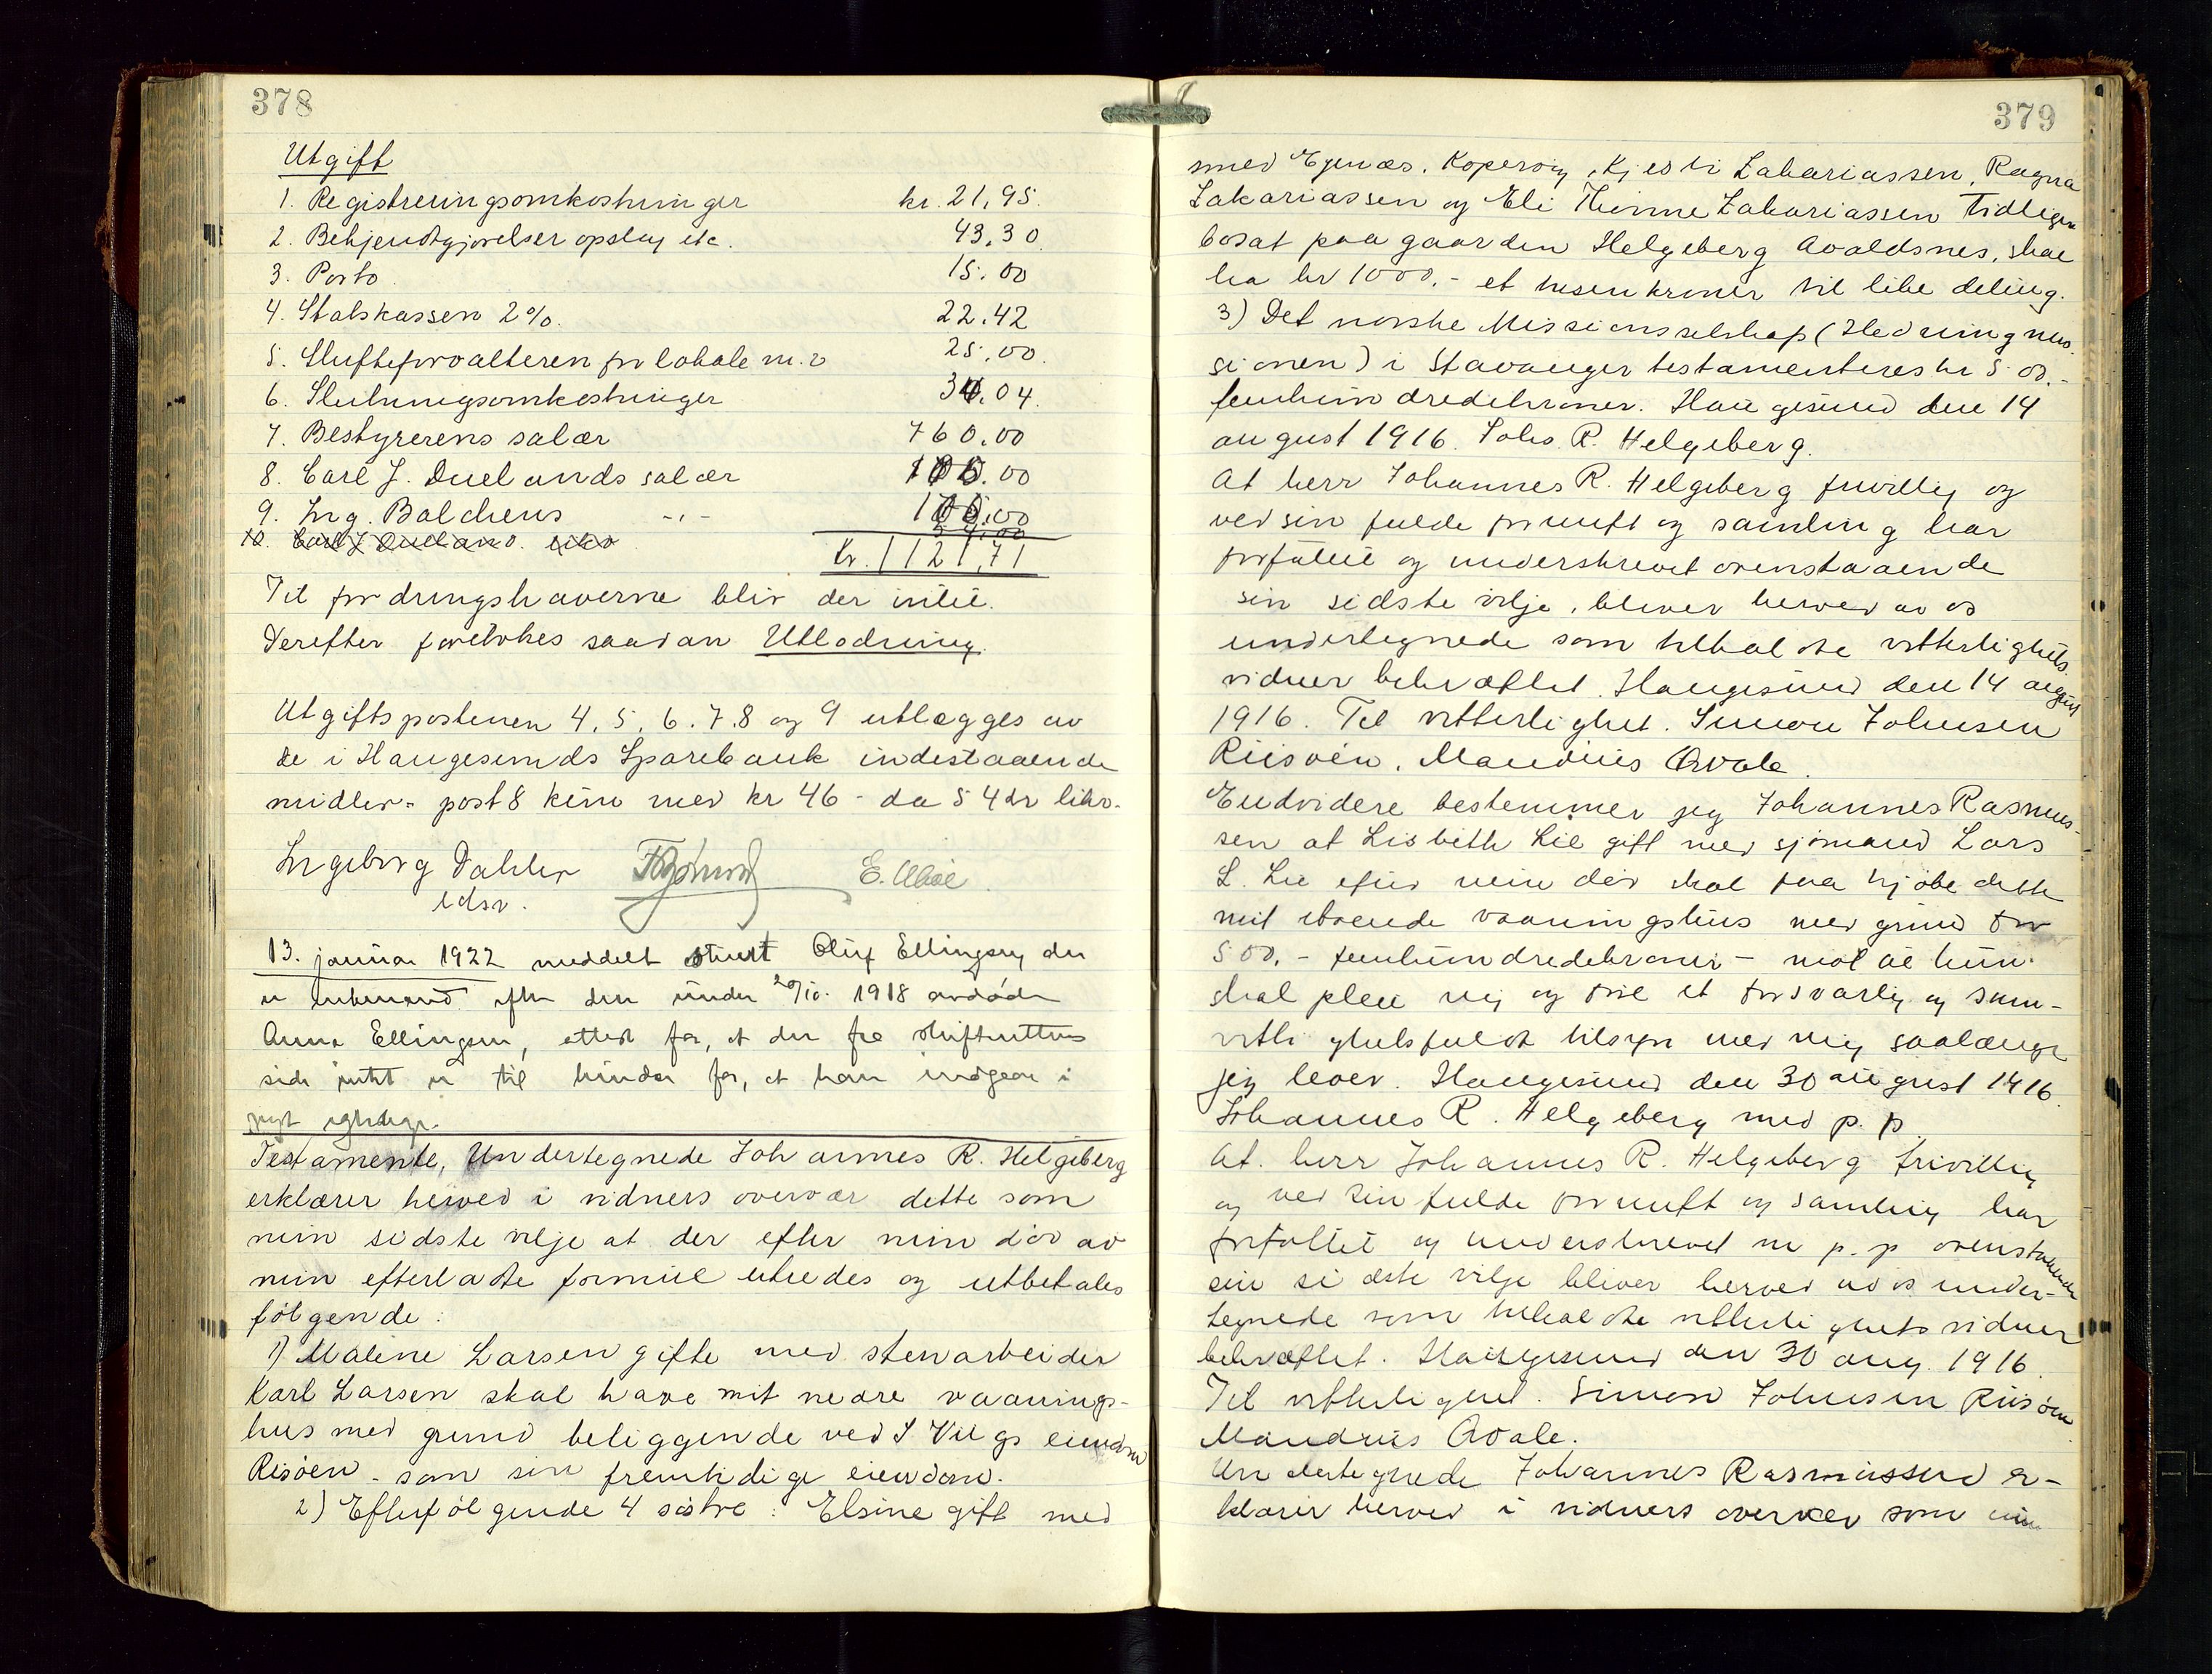 378
Utgift
1. Registreringsomkostninger kr. 21,95.
2. Bekjendtgjørelser opslag etc. 43,30
3. Porto 15.00
4. Statskassen 2% 22.42
5. Skifteforvalteren for lokale m.v 25.00.
6. Slutningsomkostninger 34.04.
7. Bestyrerens salær 760.00
8. Carl J. Duelands salær 100.00
9. Ing. Balchens -"- 100.00
10. Carl J. Dueland
kr. 1121,71
Til fordringshaverne blir der intet.
Derefter foretokes saadan Utlodning.
Utgiftspostenen 4, 5, 6. 7. 8 og 9 utlægges av
de i Haugesunds Sparebank indestaaende
midler - post 8 kun med kr 46 - da 54 kr
Ingeborg Dahler
edsv.
13. januar 1922 meddelt stuert Oluf Ellingsen der
er enkemand efter den under 20/10. 1918 avdøde
Anna Ellingsen, attest for, at der fra skifterettens
side intet er til hinder for, at han indgaar i
nyt egteskap.
Testamente, Undertegnede Johannes R. Helgeberg
erklærer herved i vidners overvær dette som
min sidste vilje at der efter min død av
min efterladte formue utredes og utbetales
følgende:
1) Maline Larsen gifte med stenarbeider
Karl Larsen skal have mit nedre vaanings-
hus med grund beliggende ved S Viigs eiendom
Risøen - som sin fremtidige eiendom.
2) Efterfølgende 4 søstre: Elsine gift med
379
smed Egenæs. Kopervig, Kjesti Zakariassen, Ragna
Zakariassen og Eli Thinne Zakariassen tidligere
bosat paa gaarden Helgeberg Avaldsnes, skal
ha kr 1000.- et tusen kroner til like deling.
3) Det norske Missionsselskap (Hedningmis-
sionen) i Stavanger testamenteres kr 500.-
femhundredekroner. Haugesund den 14
august 1916. Johs. R. Helgeberg.
At herr Johannes R. Helgeberg frivillig og
ved sin fulde fornuft og samling har
forfattet og underskrevet ovenstaaende
sin sidste vilje, bliver herved av os
undertegnede som tilkaldte vitterlighets
vidner bekræftet. Haugesund den 14 august
1916. Til vitterlighet. Simon Johnsen
Riisøen. Maudius Qvale.
Endvidere bestemmer jeg Johannes Rasmus-
sen at Lisbeth Lie gift med sjømand Lars
L. Lie efter min død skal faa kjøbe dette
mit iboende vaaningshus med grund for
500.- femhundredekroner - mot at hun
skal pleie mig og føre et forsvarlig og sam-
vittighetsfuldt tilsyn med mig saalænge
jeg lever. Haugesund den 30 august 1916.
Johannes R. Helgeberg med p. p.
At. herr Johannes R. Helgeberg frivillig
og ved sin fulde fornuft og samling har
forfattet og underskrevet m p. p ovenstaaende
sin sidste vilje bliver herved av os under-
tegnede som tilkaldte vitterlighets vidner
bekræftet. Haugesund den 30 aug. 1916.
Til vitterlighet. Simon Johnsen Riisøen
Maudius Qvale.
Undertegnede Johannes Rasmussen er-
klærer herved i vidners overvær som min